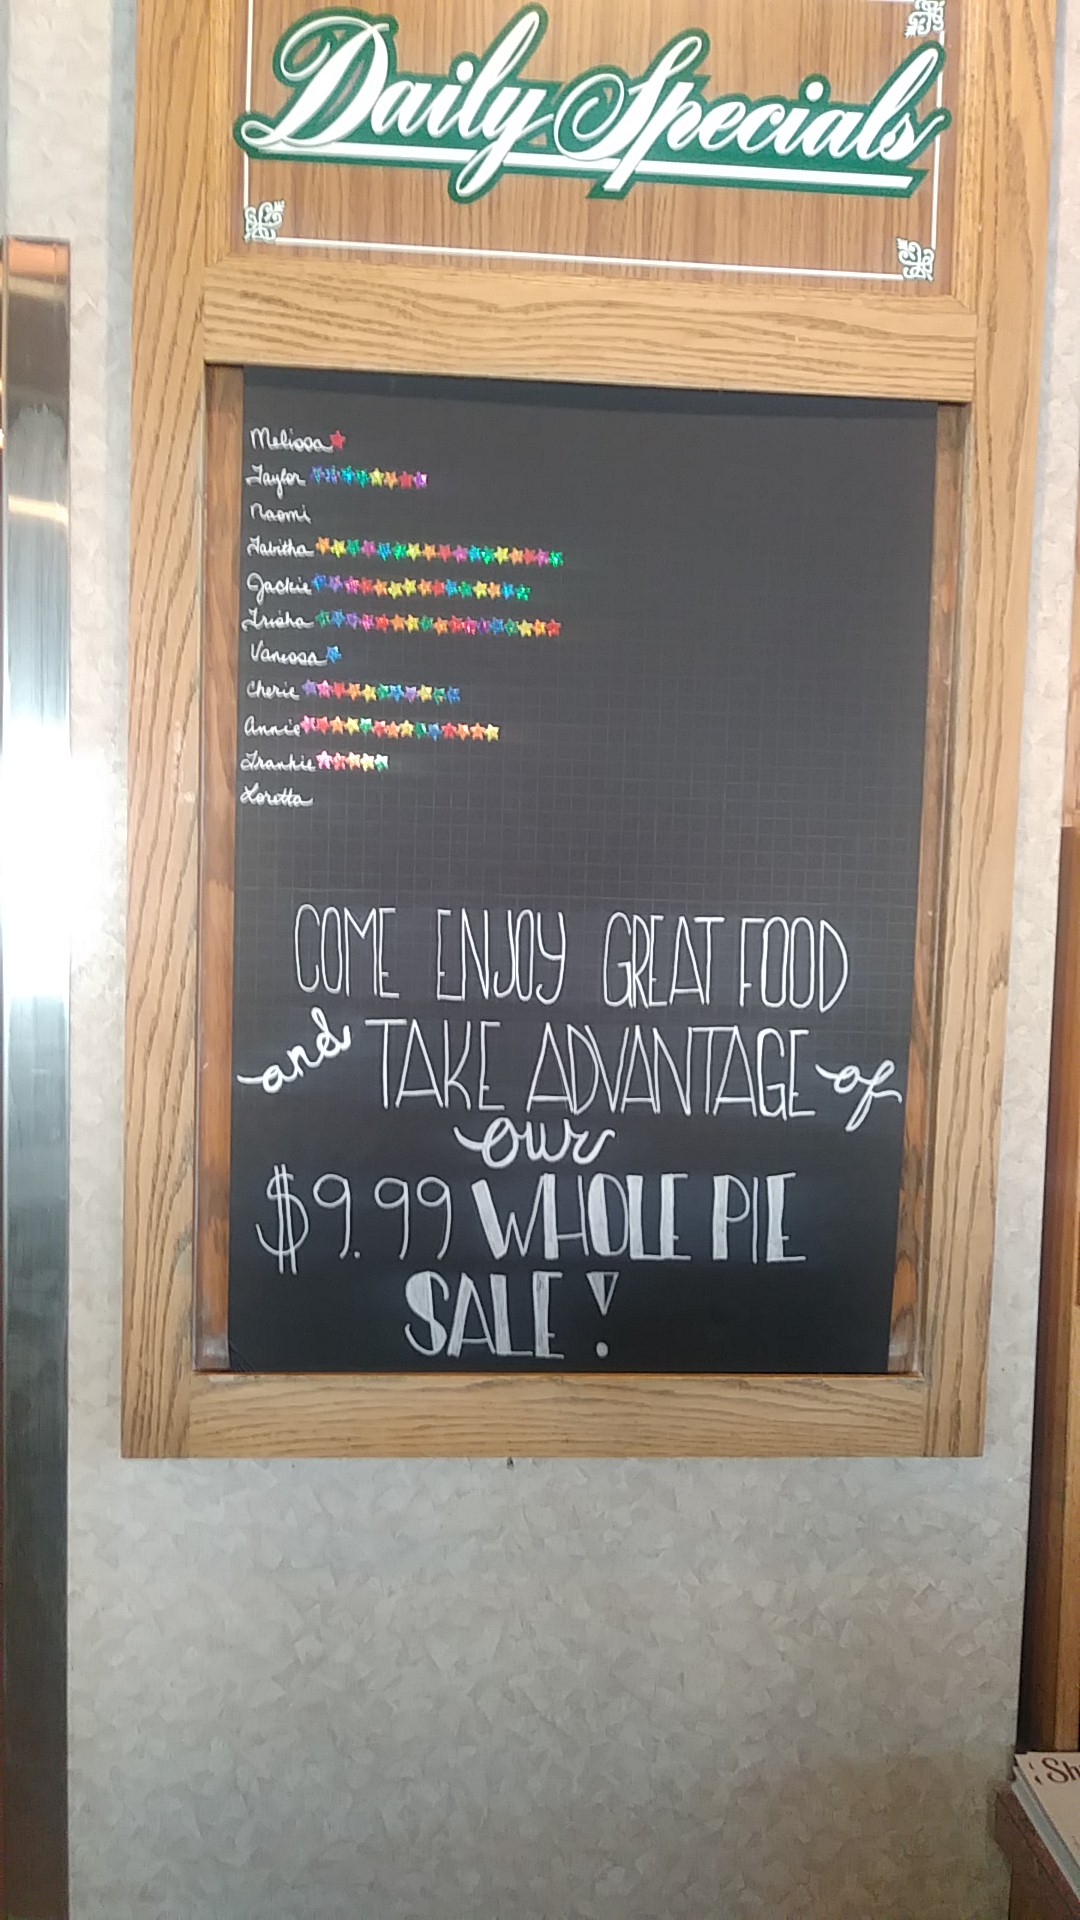 Daily Specials
Melissa
Taylor
Naomi
Tabitha
Jackie
Trisha
Vanessa
Cherie
Annie
Frankie
Loretta
COME ENJOY GREAT FOOD
and TAKE ADVANTAGE of
our
$9.99 WHOLE PIE
SALE!
Sh